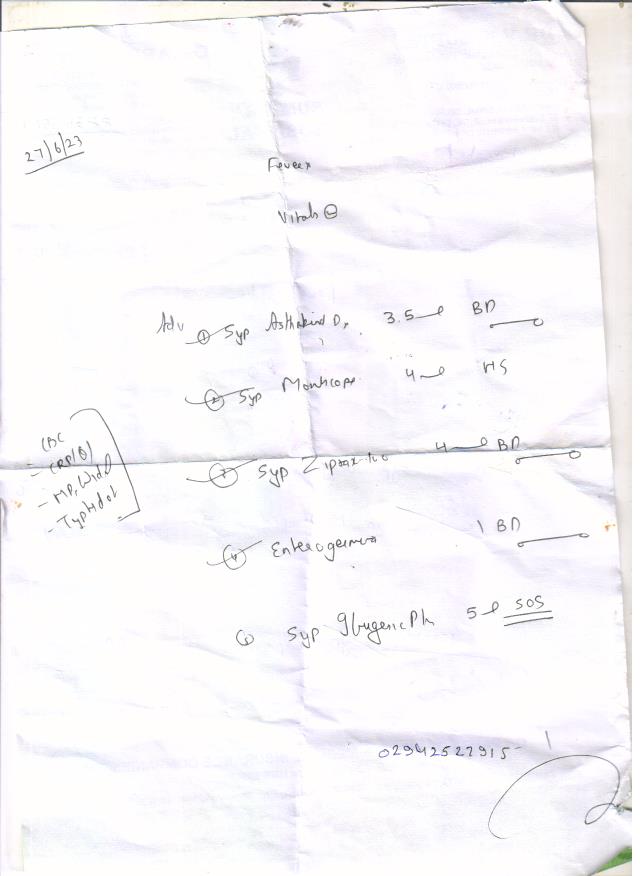 27/6/23
Fever
Vitals
Adv ① Syp Asthakind Dx 3.5 ml BD
② Syp Montcope 4 ml HS
③ Syp 4 ml BD
④ Enterogermina 1 BD
Syp Ibugenic Plus 5 ml SOS
CBC
- CRP(Q)
- MP, Widal
- Typhidot
02942522915